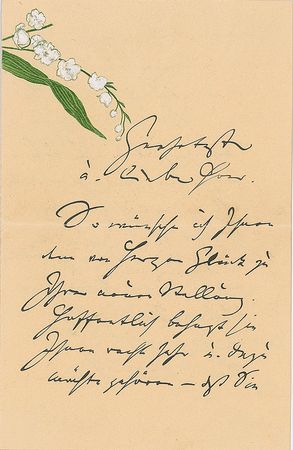 Geehrteste
u. Liebe Frau.
So wünsche ich Ihnen
denn von Herzen Glück zu
Ihrer neuen Stellung.
Hoffentlich behagt sie
Ihnen recht sehr u. dazu
möchte gehören – daß Sie